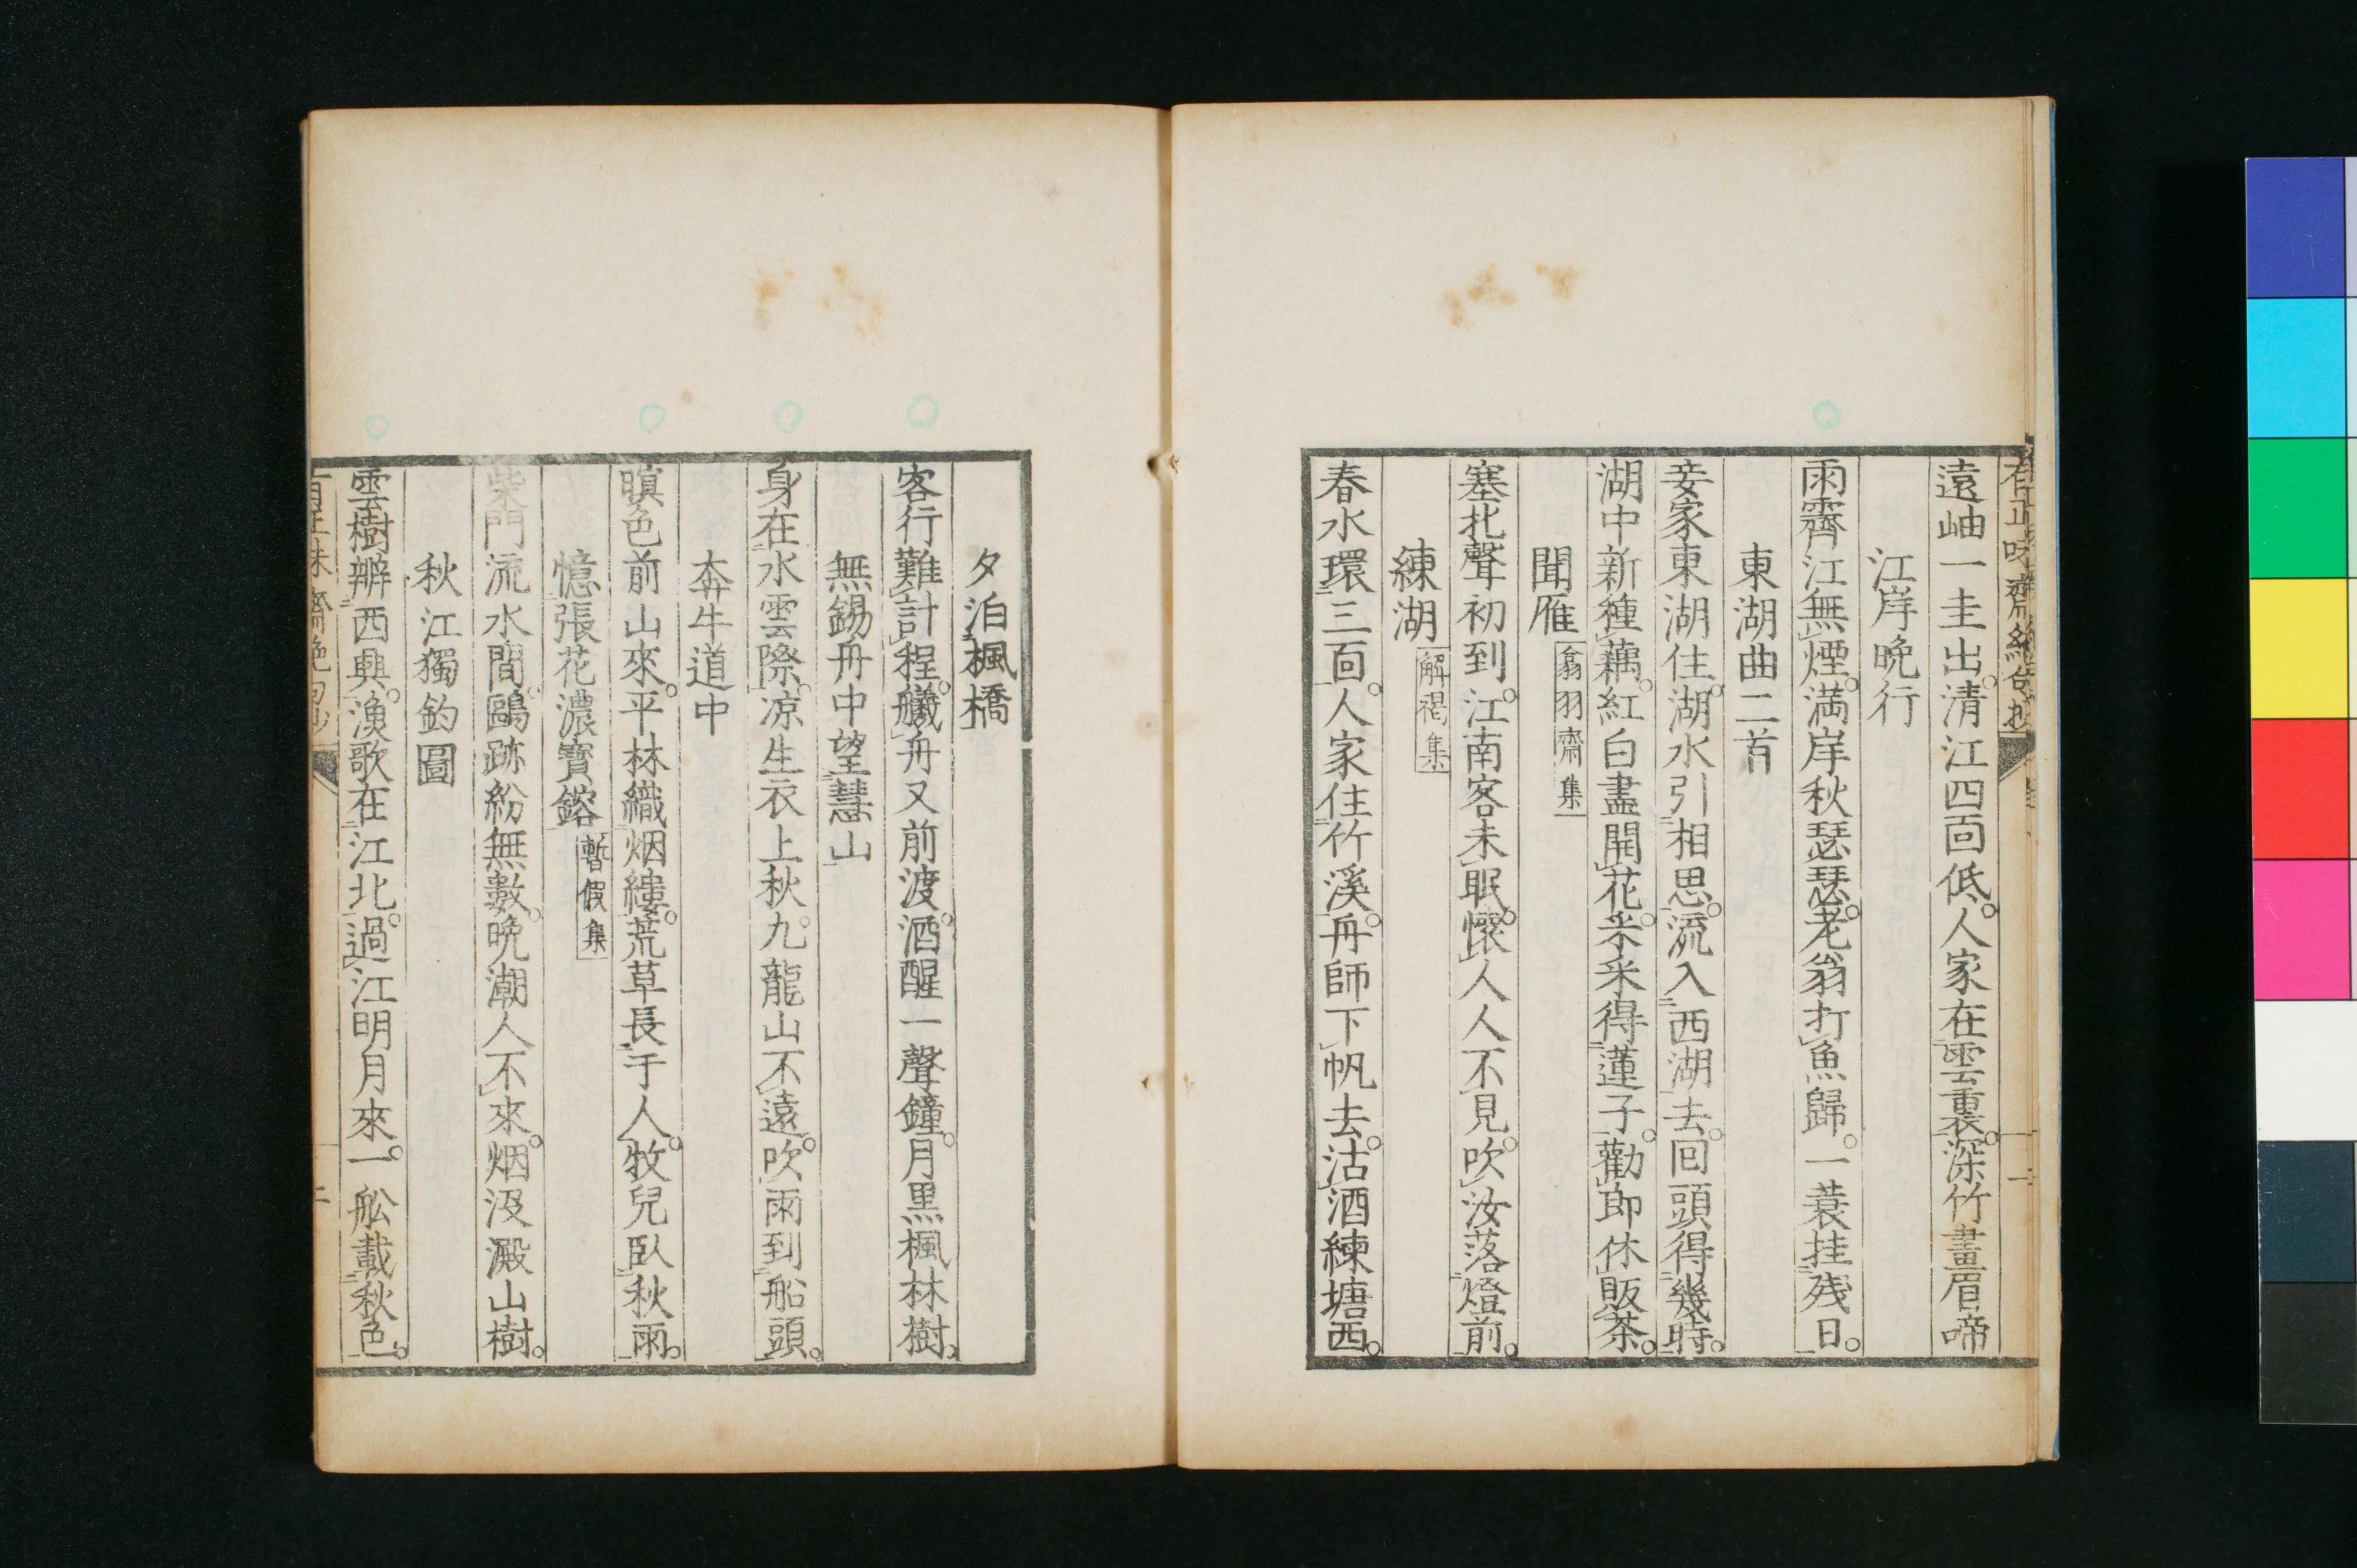 遠岫一圭出。清江四面低。人家在雲裏。深竹畫眉啼
江岸晩行
雨霽江無煙。満岸秋瑟瑟。老翁打魚歸。一蓑挂残日。
東湖曲二首
妾家東湖住。湖水引相思。流入西湖去。回頭得幾時。
湖中新種藕。紅白盡開花。采采得蓮子。勸郎休販茶。
聞雁 翕羽齋集
塞北聲初到。江南客未眠。懷人人不見。吹汝落燈前。
練湖 解褐集
春水環三面。人家住竹溪。舟師下帆去。沽酒練塘西。
夕泊楓橋
客行難計程。艤舟又前渡。酒醒一聲鐘。月黒楓林樹。
無錫舟中望慧山
身在水雲際。凉生衣上秋。九龍山不遠。吹雨到船頭。
奔牛道中
暝色前山來。平林織烟縷。荒草長于人。牧兒臥秋雨。
憶張花濃寶鎔 暫假集
柴門流水間。鷗跡紛無數。晩潮人不來。烟沒澱山樹。
秋江獨釣圖
雲樹辨西興。漁歌在江北。過江明月來。一舩載秋色。